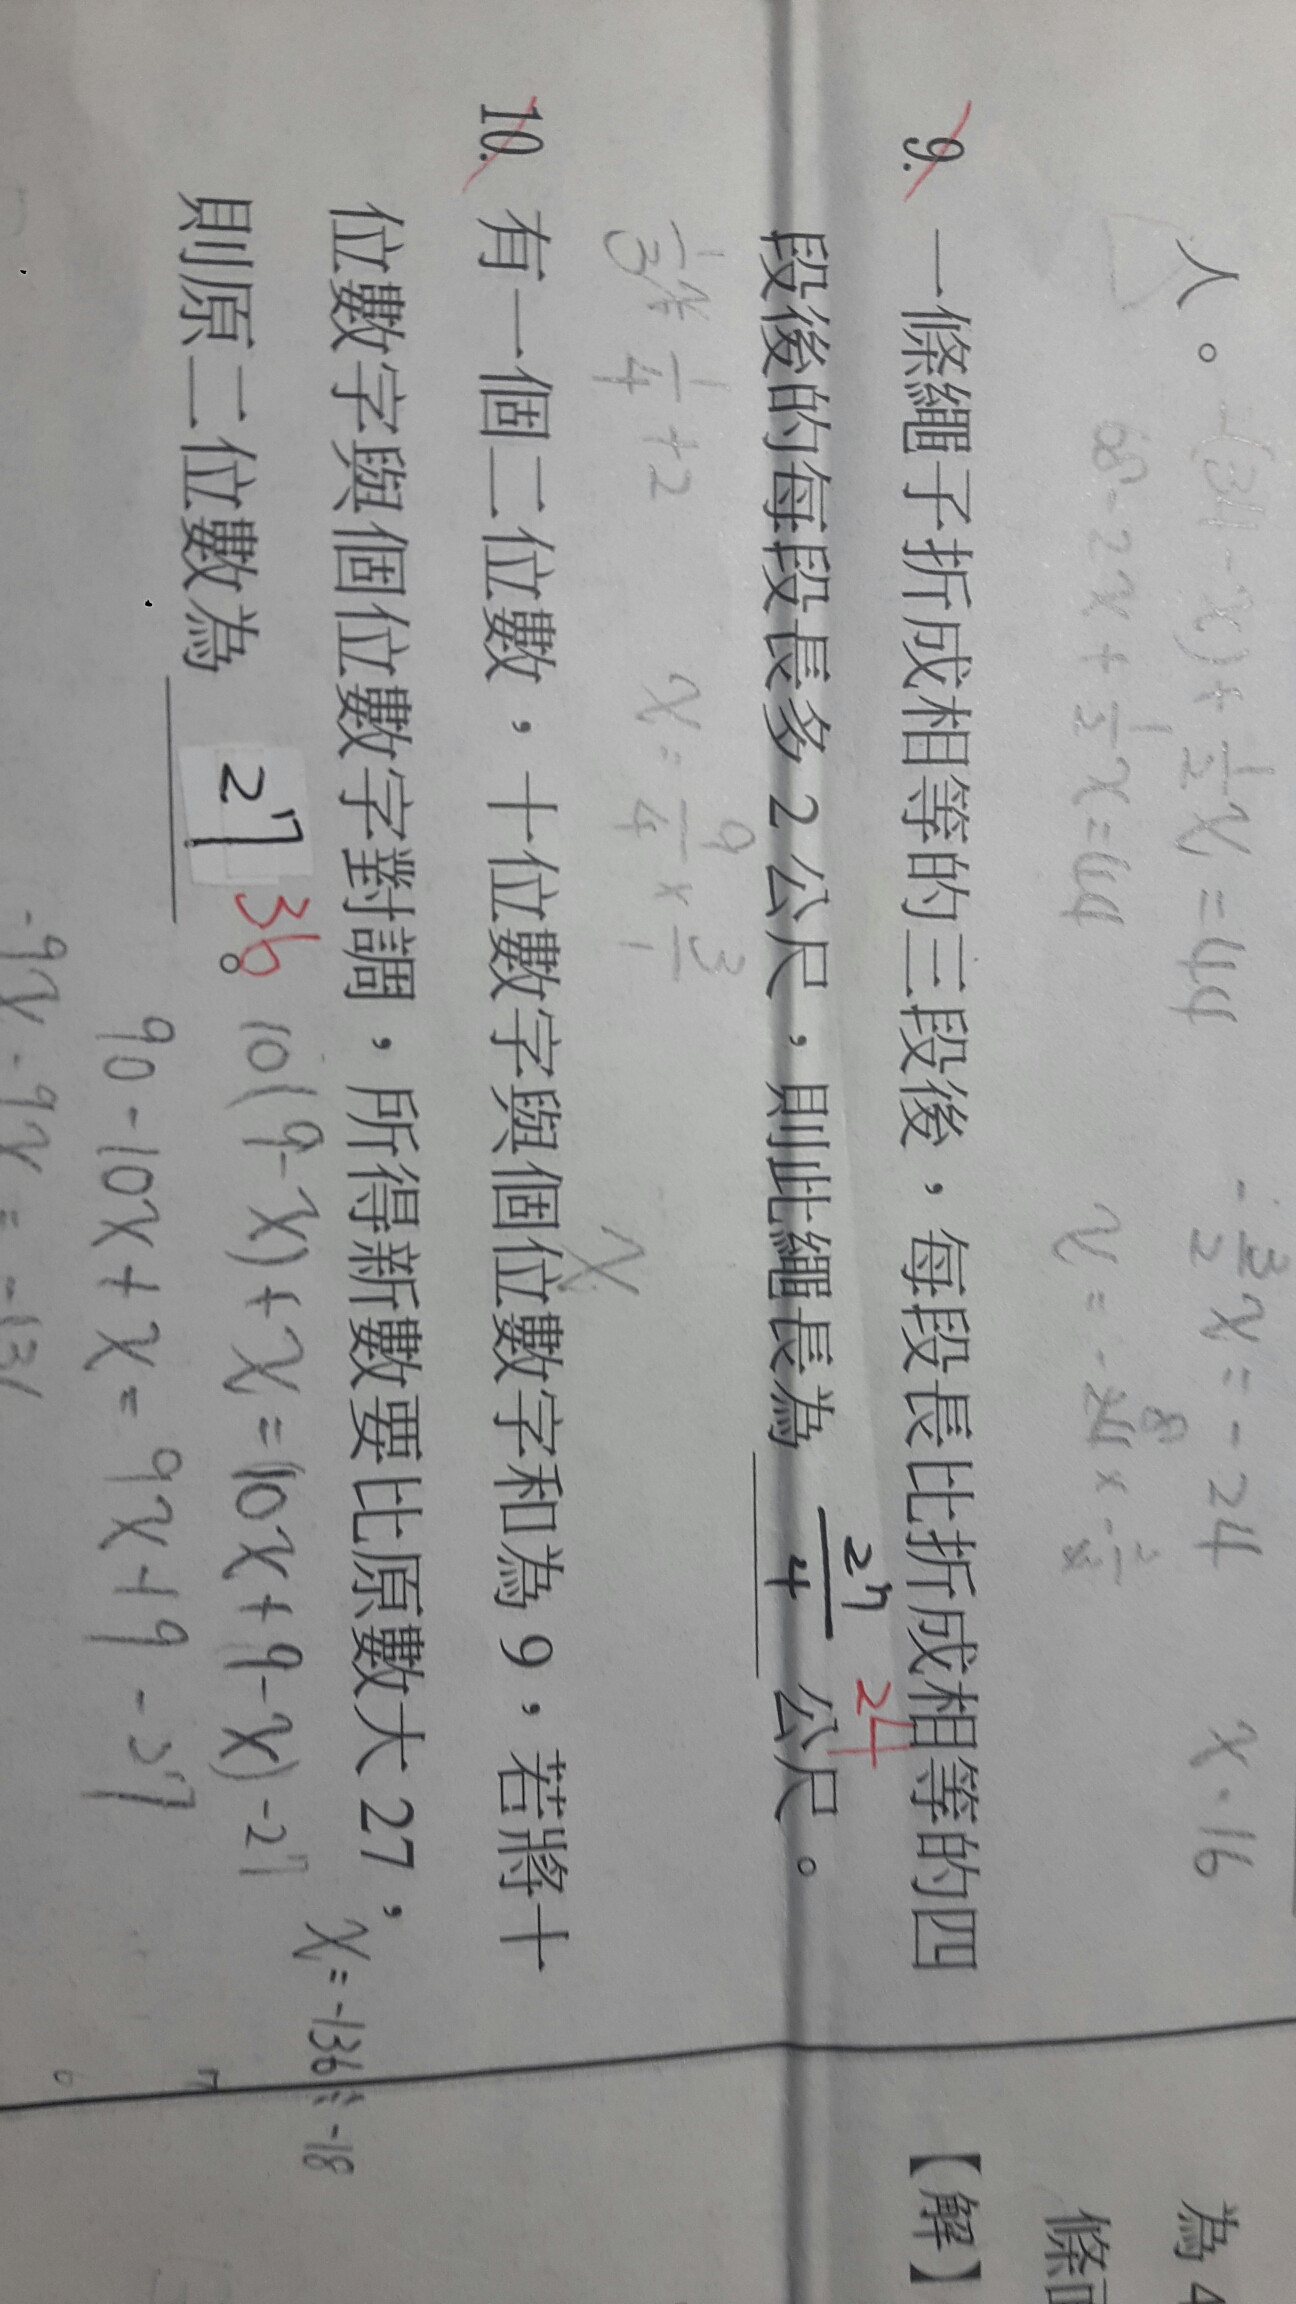 人。 -(34-x)+\frac{1}{2}x=44 -\frac{3}{2}x=-24 x=16
68-2x+\frac{1}{2}x=44
9. 一條繩子折成相等的三段後，每段長比折成相等的四
段後的每段長多 2 公尺，則此繩長為 \frac{27}{4} 公尺。 24
\frac{1}{3}x \frac{1}{4}+2 x=\frac{9}{4}×\frac{3}{1} x
10. 有一個二位數，十位數字與個位數字和為 9，若將十
位數字與個位數字對調，所得新數要比原數大 27，
則原二位數為 27。 36
10(9-x)+x=10x+9-x)-27
90-10x+x=9x+9-
x=-136÷-18
【解】
為 4